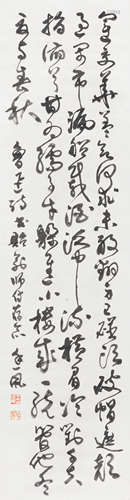 運交華蓋欲何求未敢翻身已碰頭破帽遮顏
過鬧市漏船載酒泛中流橫眉冷對千夫
指俯首甘為孺子牛躲進小樓成一統管他冬
夏與春秋 魯迅詩